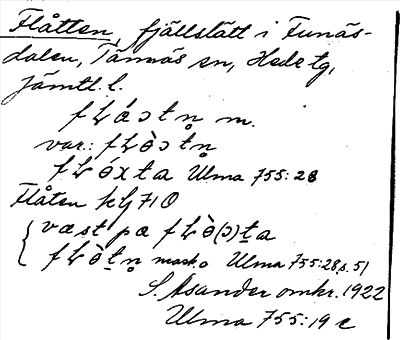 Flåtten, fjällslått i Funäs-
dalen, Tännäs sn, Hede tg,
Jämtl. l.
fꝉáɔtn̥ m.
var.: fꝉòɔtn̥
fꝉóxta Ulma 755:28
Flåten kbl 710
væst pa fꝉò(ɔ)ta
fꝉòtn̥ mask. Ulma 755:28, s. 51
S. Åsander omkr. 1922
Ulma 755:19 c